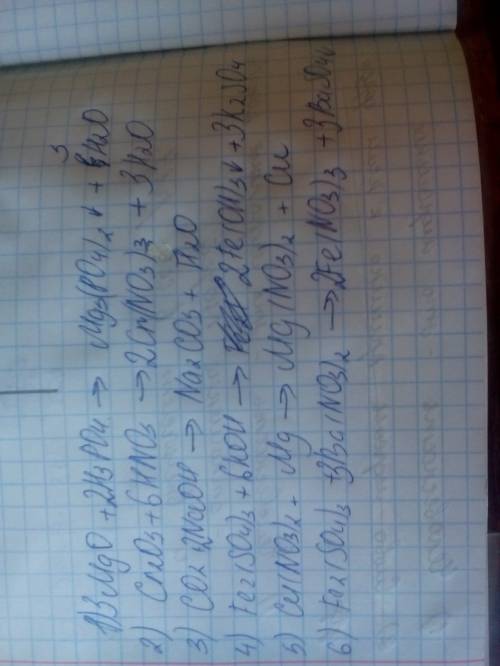 1) 3MgO + 2H3PO4 → Mg3(PO4)2↓ + 3H2O
2) Cr2O3 + 6HNO3 → 2Cr(NO3)3 + 3H2O
3) CO2 2NaOH → Na2CO3 + H2O
4) Fe2(SO4)3 + 6KOH → 2Fe(OH)3↓ + 3K2SO4
5) Cu(NO3)2 + Mg → Mg(NO3)2 + Cu
6) Fe2(SO4)3 + 3Ba(NO3)2 → 2Fe(NO3)3 + 3BaSO4↓